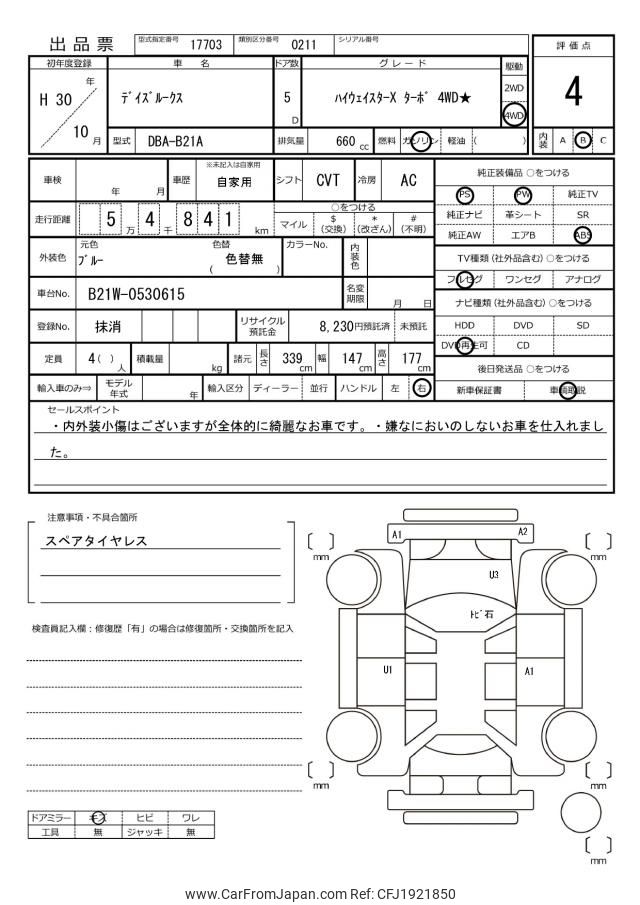 出品票 型式指定番号 17703 類別区分番号 0211 シリアル番号
評価点
4
内装 A B C
初年度登録 車名 ドア数 グレード 駆動
H 30 年 10 月
ﾃﾞｲｽﾞﾙｰｸｽ 5 D ﾊｲｳｪｲｽﾀｰX ﾀｰﾎﾞ 4WD★ 2WD 4WD
型式 DBA-B21A 排気量 660 cc 燃料 ガソリン 軽油 ( )
車検 年 月 車歴 ※未記入は自家用 自家用 シフト CVT 冷房 AC
走行距離 5 万 4 千 8 4 1 km
○をつける
マイル $(交換) *(改ざん) #(不明)
外装色 元色 ﾌﾞﾙｰ 色替 ( 色替無 ) カラーNo. 内装色
車台No. B21W-0530615 名変期限 月 日
登録No. 抹消 リサイクル預託金 8,230円預託済 未預託
定員 4( )人 積載量 kg 諸元 長さ 339 cm 幅 147 cm 高さ 177 cm
輸入車のみ⇒ モデル年式 年 輸入区分 ディーラー 並行 ハンドル 左 右
純正装備品 ○をつける
PS PW 純正TV
純正ナビ 革シート SR
純正AW エアB ABS
TV種類 (社外品含む) ○をつける
フルセグ ワンセグ アナログ
ナビ種類 (社外品含む) ○をつける
HDD DVD SD
DVD再生可 CD
後日発送品 ○をつける
新車保証書 車輌取説
セールスポイント
・内外装小傷はございますが全体的に綺麗なお車です。・嫌なにおいのしないお車を仕入れまし
た。
注意事項・不具合箇所
スペアタイヤレス
検査員記入欄：修復歴「有」の場合は修復箇所・交換箇所を記入
A1 A2
U3
ﾄﾋﾞ石
U1 A1
mm mm
mm mm
mm
ドアミラー キズ ヒビ ワレ
工具 無 ジャッキ 無
www.CarFromJapan.com Ref: CFJ1921850